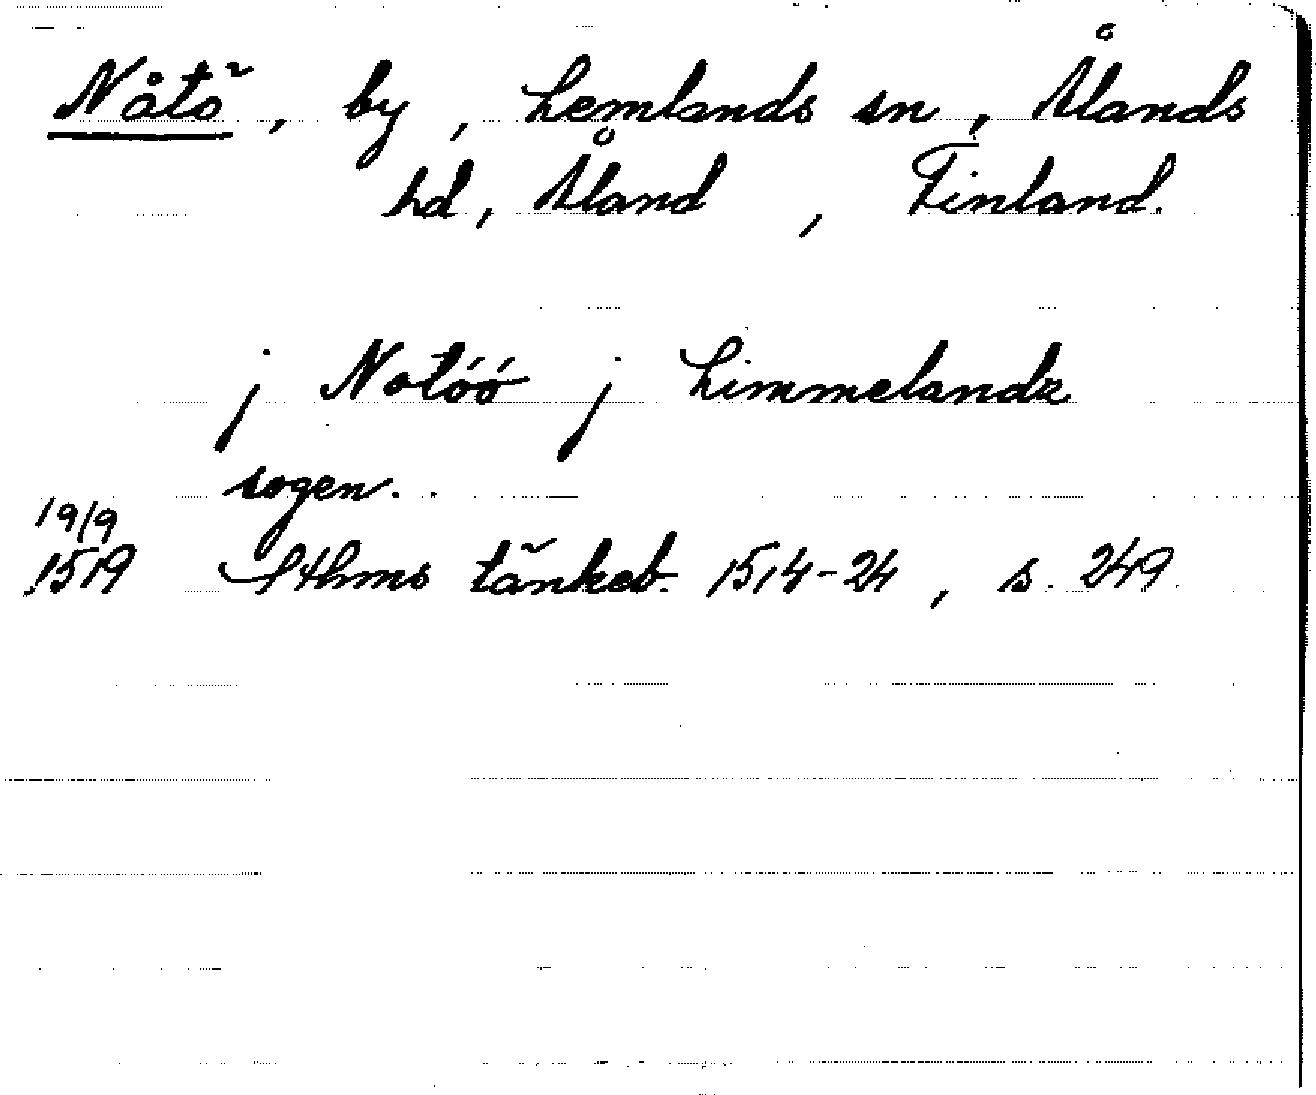 Nåtö, by, Lemlands sn, Ålands
hd, Åland, Finland.
j Notóó j Limmelandz
sogen..
19/9
1519 Sthms tänkeb. 1514-24, s. 249.